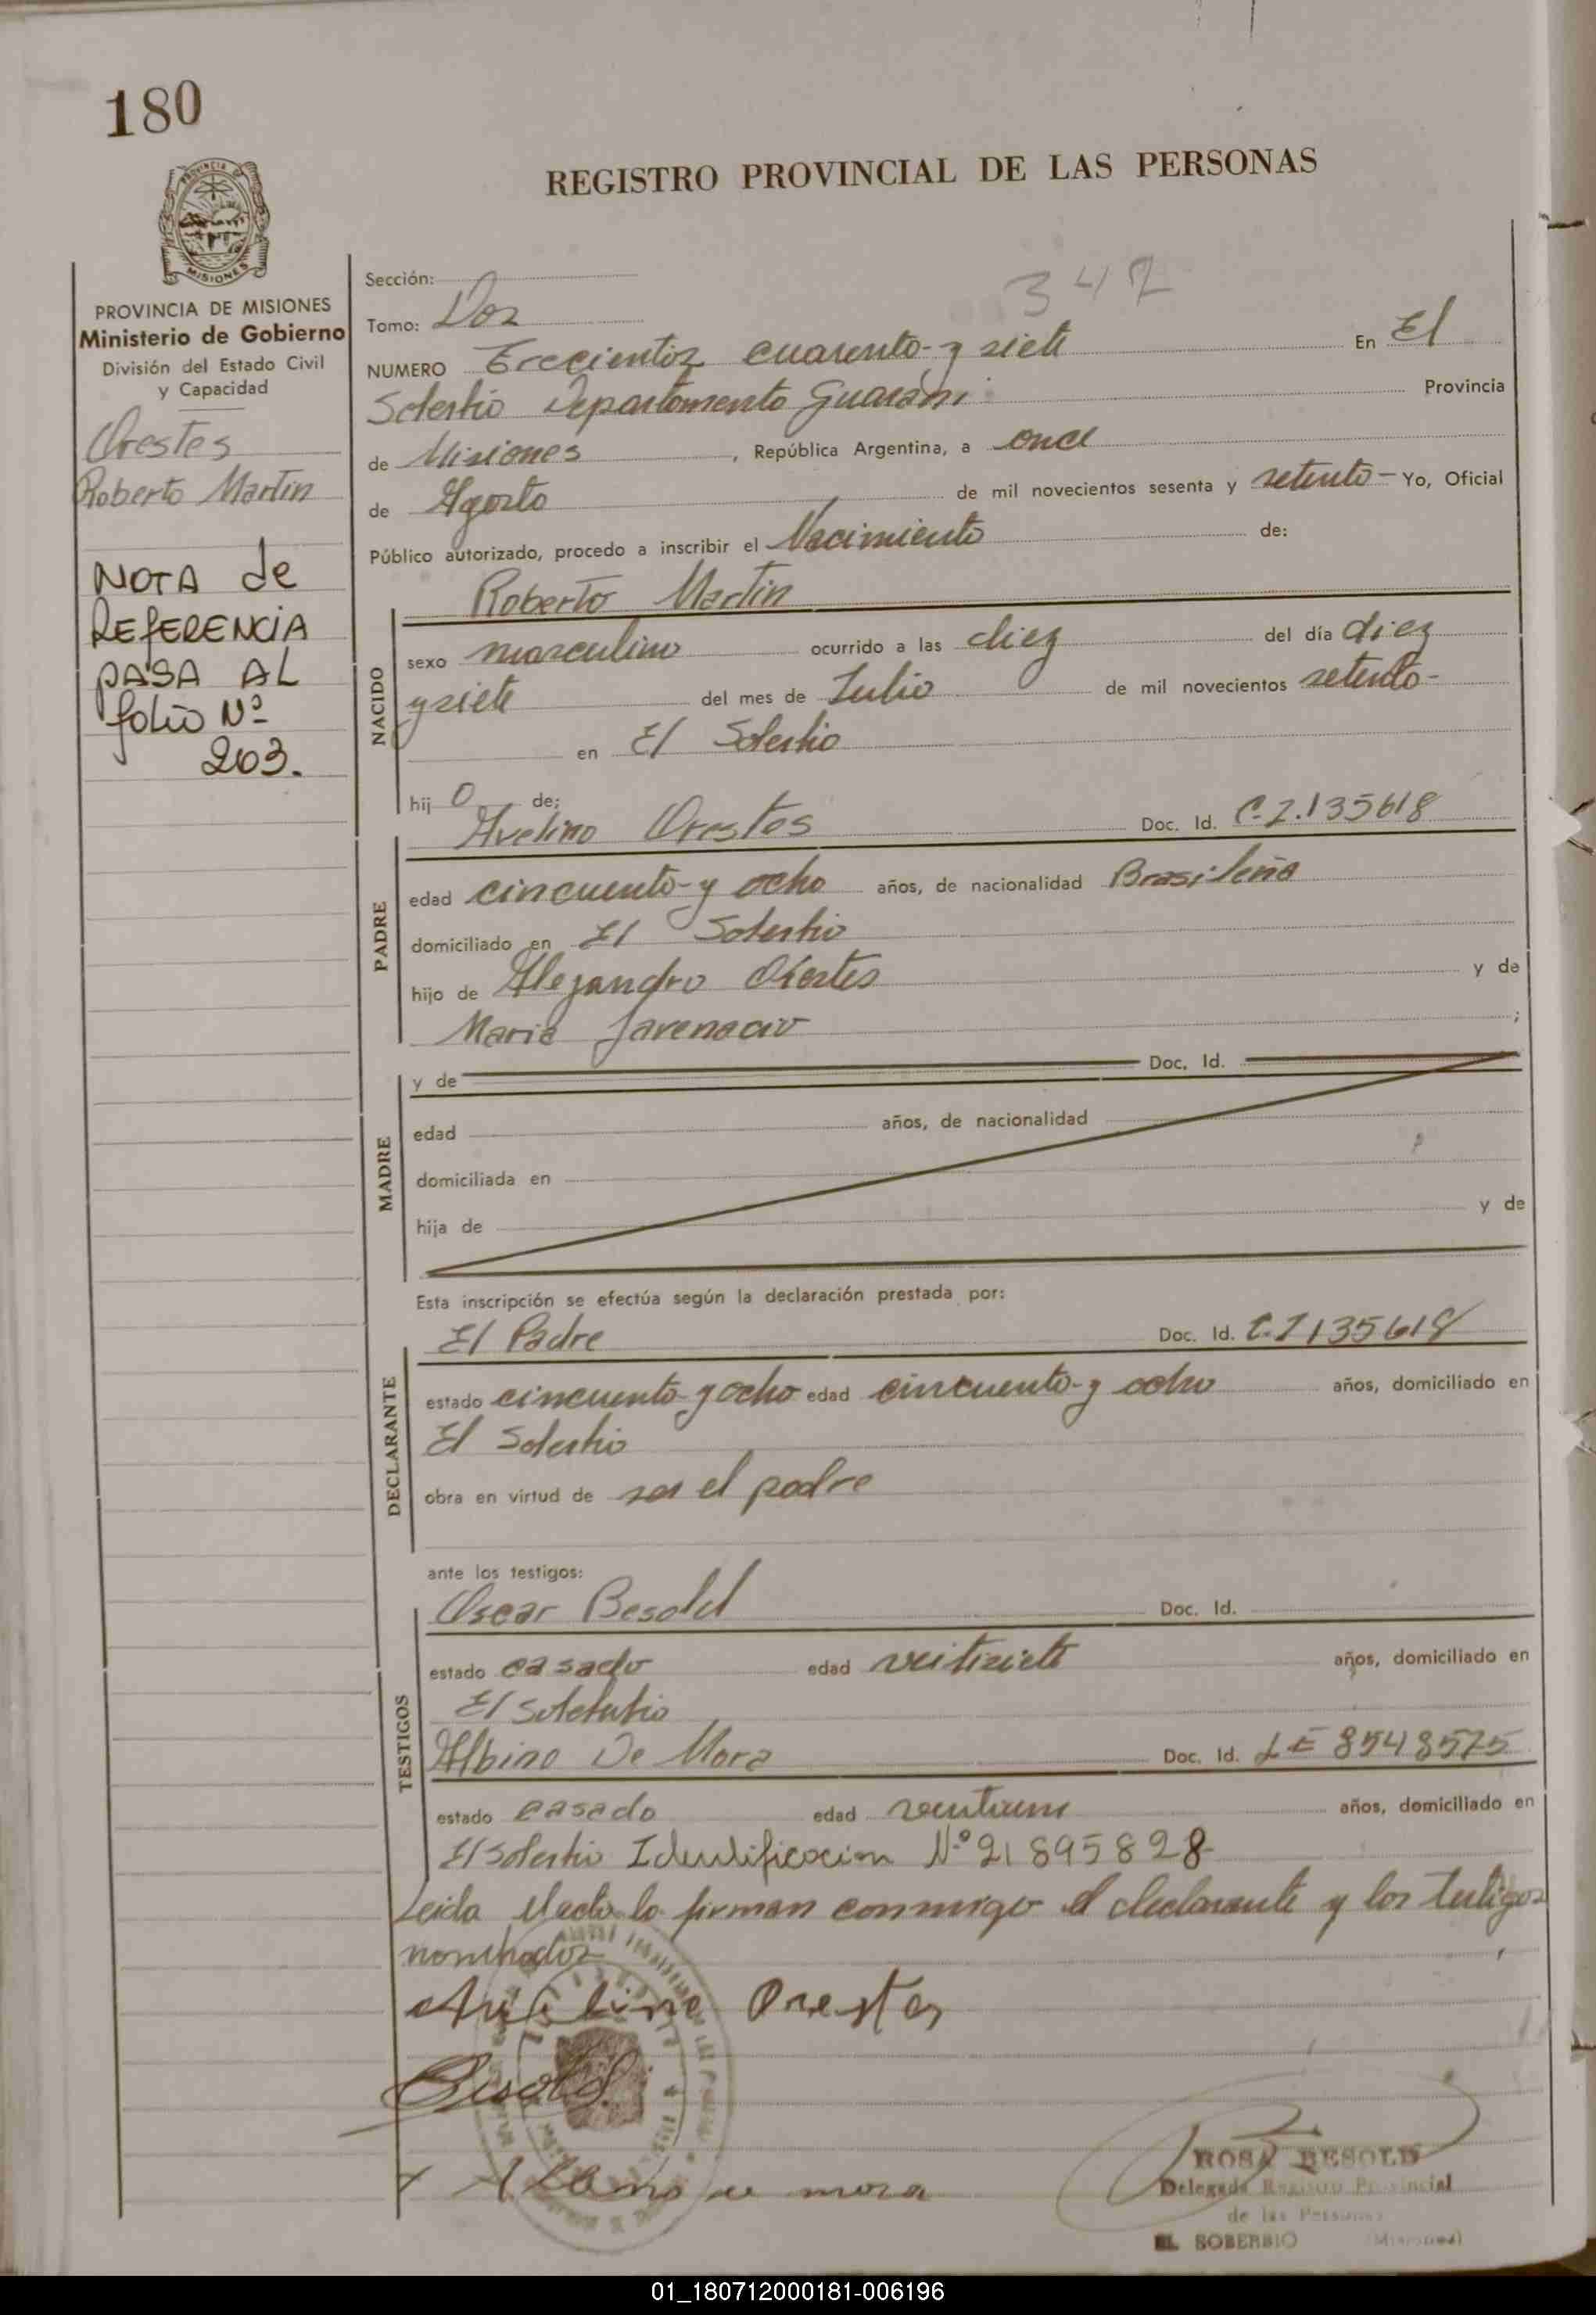 180
REGISTRO PROVINCIAL DE LAS PERSONAS
PROVINCIA
MISIONES
PROVINCIA DE MISIONES
Ministerio de Gobierno
División del Estado Civil
y Capacidad
Orestes
Roberto Martin
NOTA de
REFERENCIA
PASA AL
folio Nº
203.
Sección:
347
Tomo: Dos
NUMERO Trecientos cuarenta y siete En El
Soberbio Departamento Guarani Provincia
de Misiones, República Argentina, a once
de Agosto de mil novecientos sesenta y setenta - Yo, Oficial
Público autorizado, procedo a inscribir el Nacimiento de:
Roberto Martin
NACIDO
sexo masculino ocurrido a las diez del día diez
y siete del mes de Julio de mil novecientos setenta -
en El Soberbio
hij o de:
Avelino Orestes Doc. Id. C.I.135618
PADRE
edad cincuenta y ocho años, de nacionalidad Brasileña
domiciliado en El Soberbio
hijo de Alejandro Orestes y de
Maria Javenacio ;
MADRE
y de Doc. Id.
edad años, de nacionalidad
domiciliada en
hija de y de
Esta inscripción se efectúa según la declaración prestada por:
El Padre Doc. Id. C.I 135618
DECLARANTE
estado cincuenta y ocho edad cincuenta y ocho años, domiciliado en
El Soberbio
obra en virtud de ser el padre
ante los testigos:
Oscar Besold Doc. Id.
TESTIGOS
estado casado edad veitisiete años, domiciliado en
El Soberbio
Albino De Mora Doc. Id. LE 8548575
estado casado edad años, domiciliado en
El Soberbio Identificacion Nº 21895828-
Leida el acta la firman conmigo el declarante y los testigos
nombrados
Avelino Orestes
Besold
Albino de mora
ROSA BESOLD
Delegada Registro Provincial
de las Personas
EL SOBERBIO (Misiones)
01_180712000181-006196